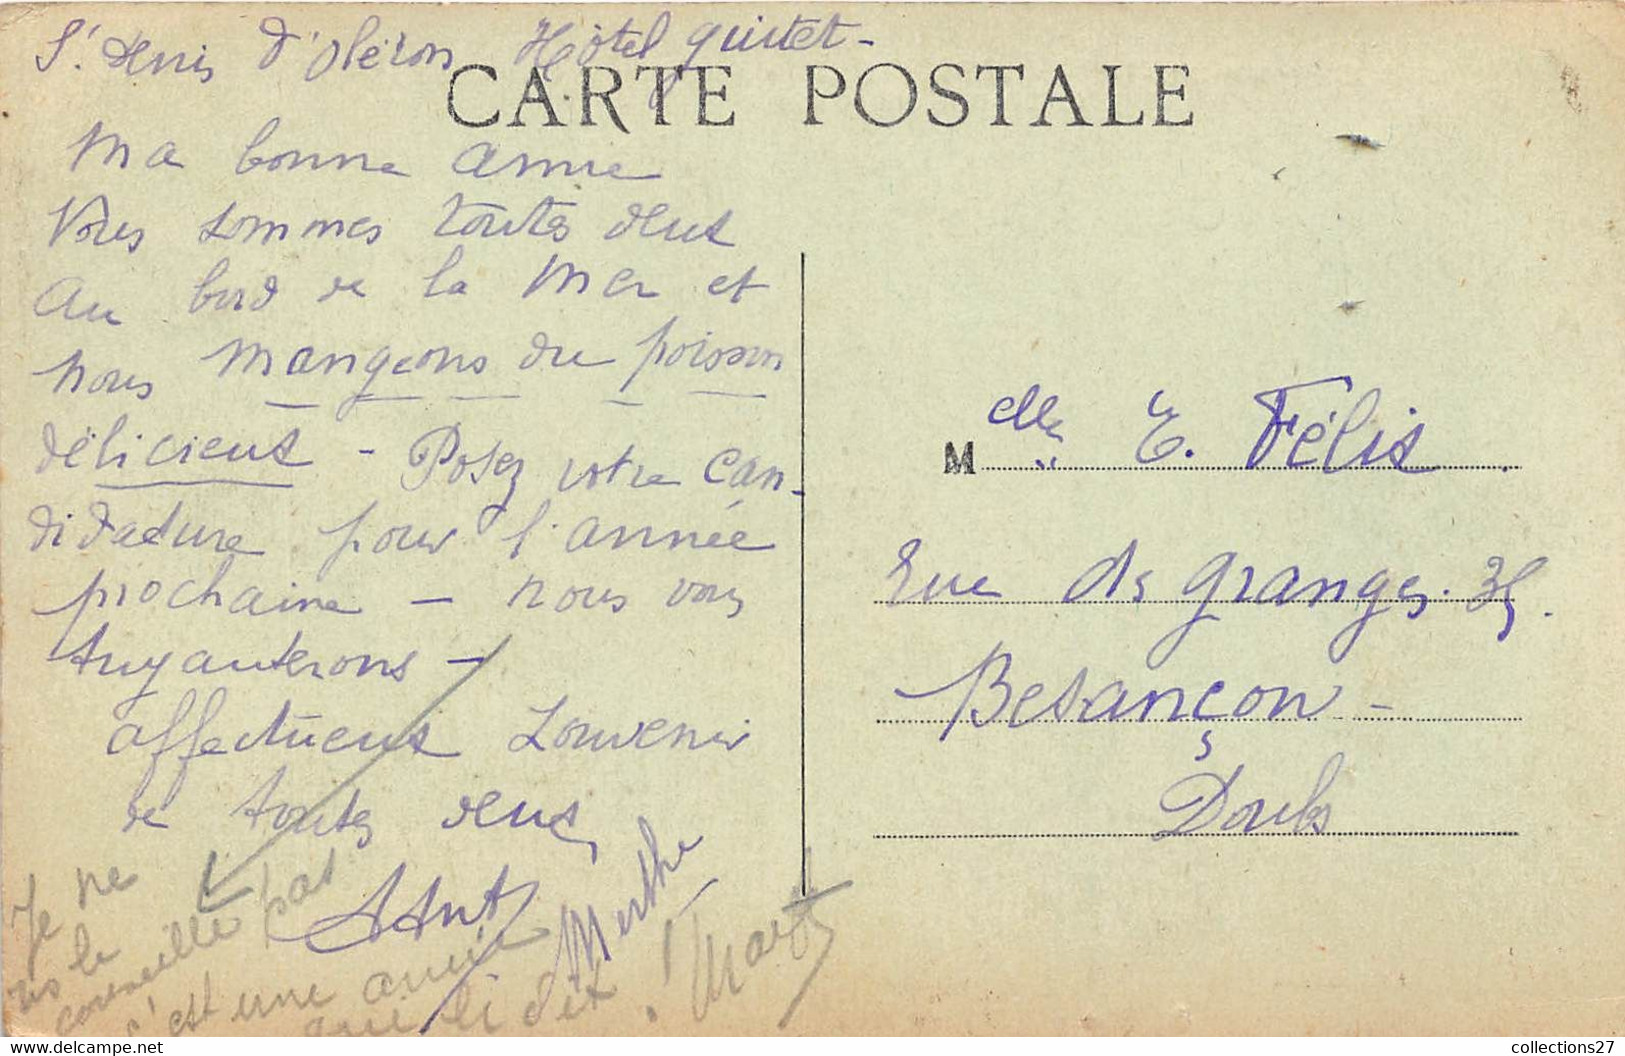 St. Denis d'Oléron Hôtel Guittet -
CARTE POSTALE
Ma bonne amie
Nous sommes toutes deux
au bord de la Mer et
nous mangeons du poisson
délicieux - Posez votre can-
didature pour l'année
prochaine - nous vous
affectueux souvenir
de toutes deux
Marthe
Je ne
vs le
conseille pas
c'est une amie
qui le dit ! Marthe
M elle E. Félix
rue des granges. 35.
Besançon -
Doubs
collections27